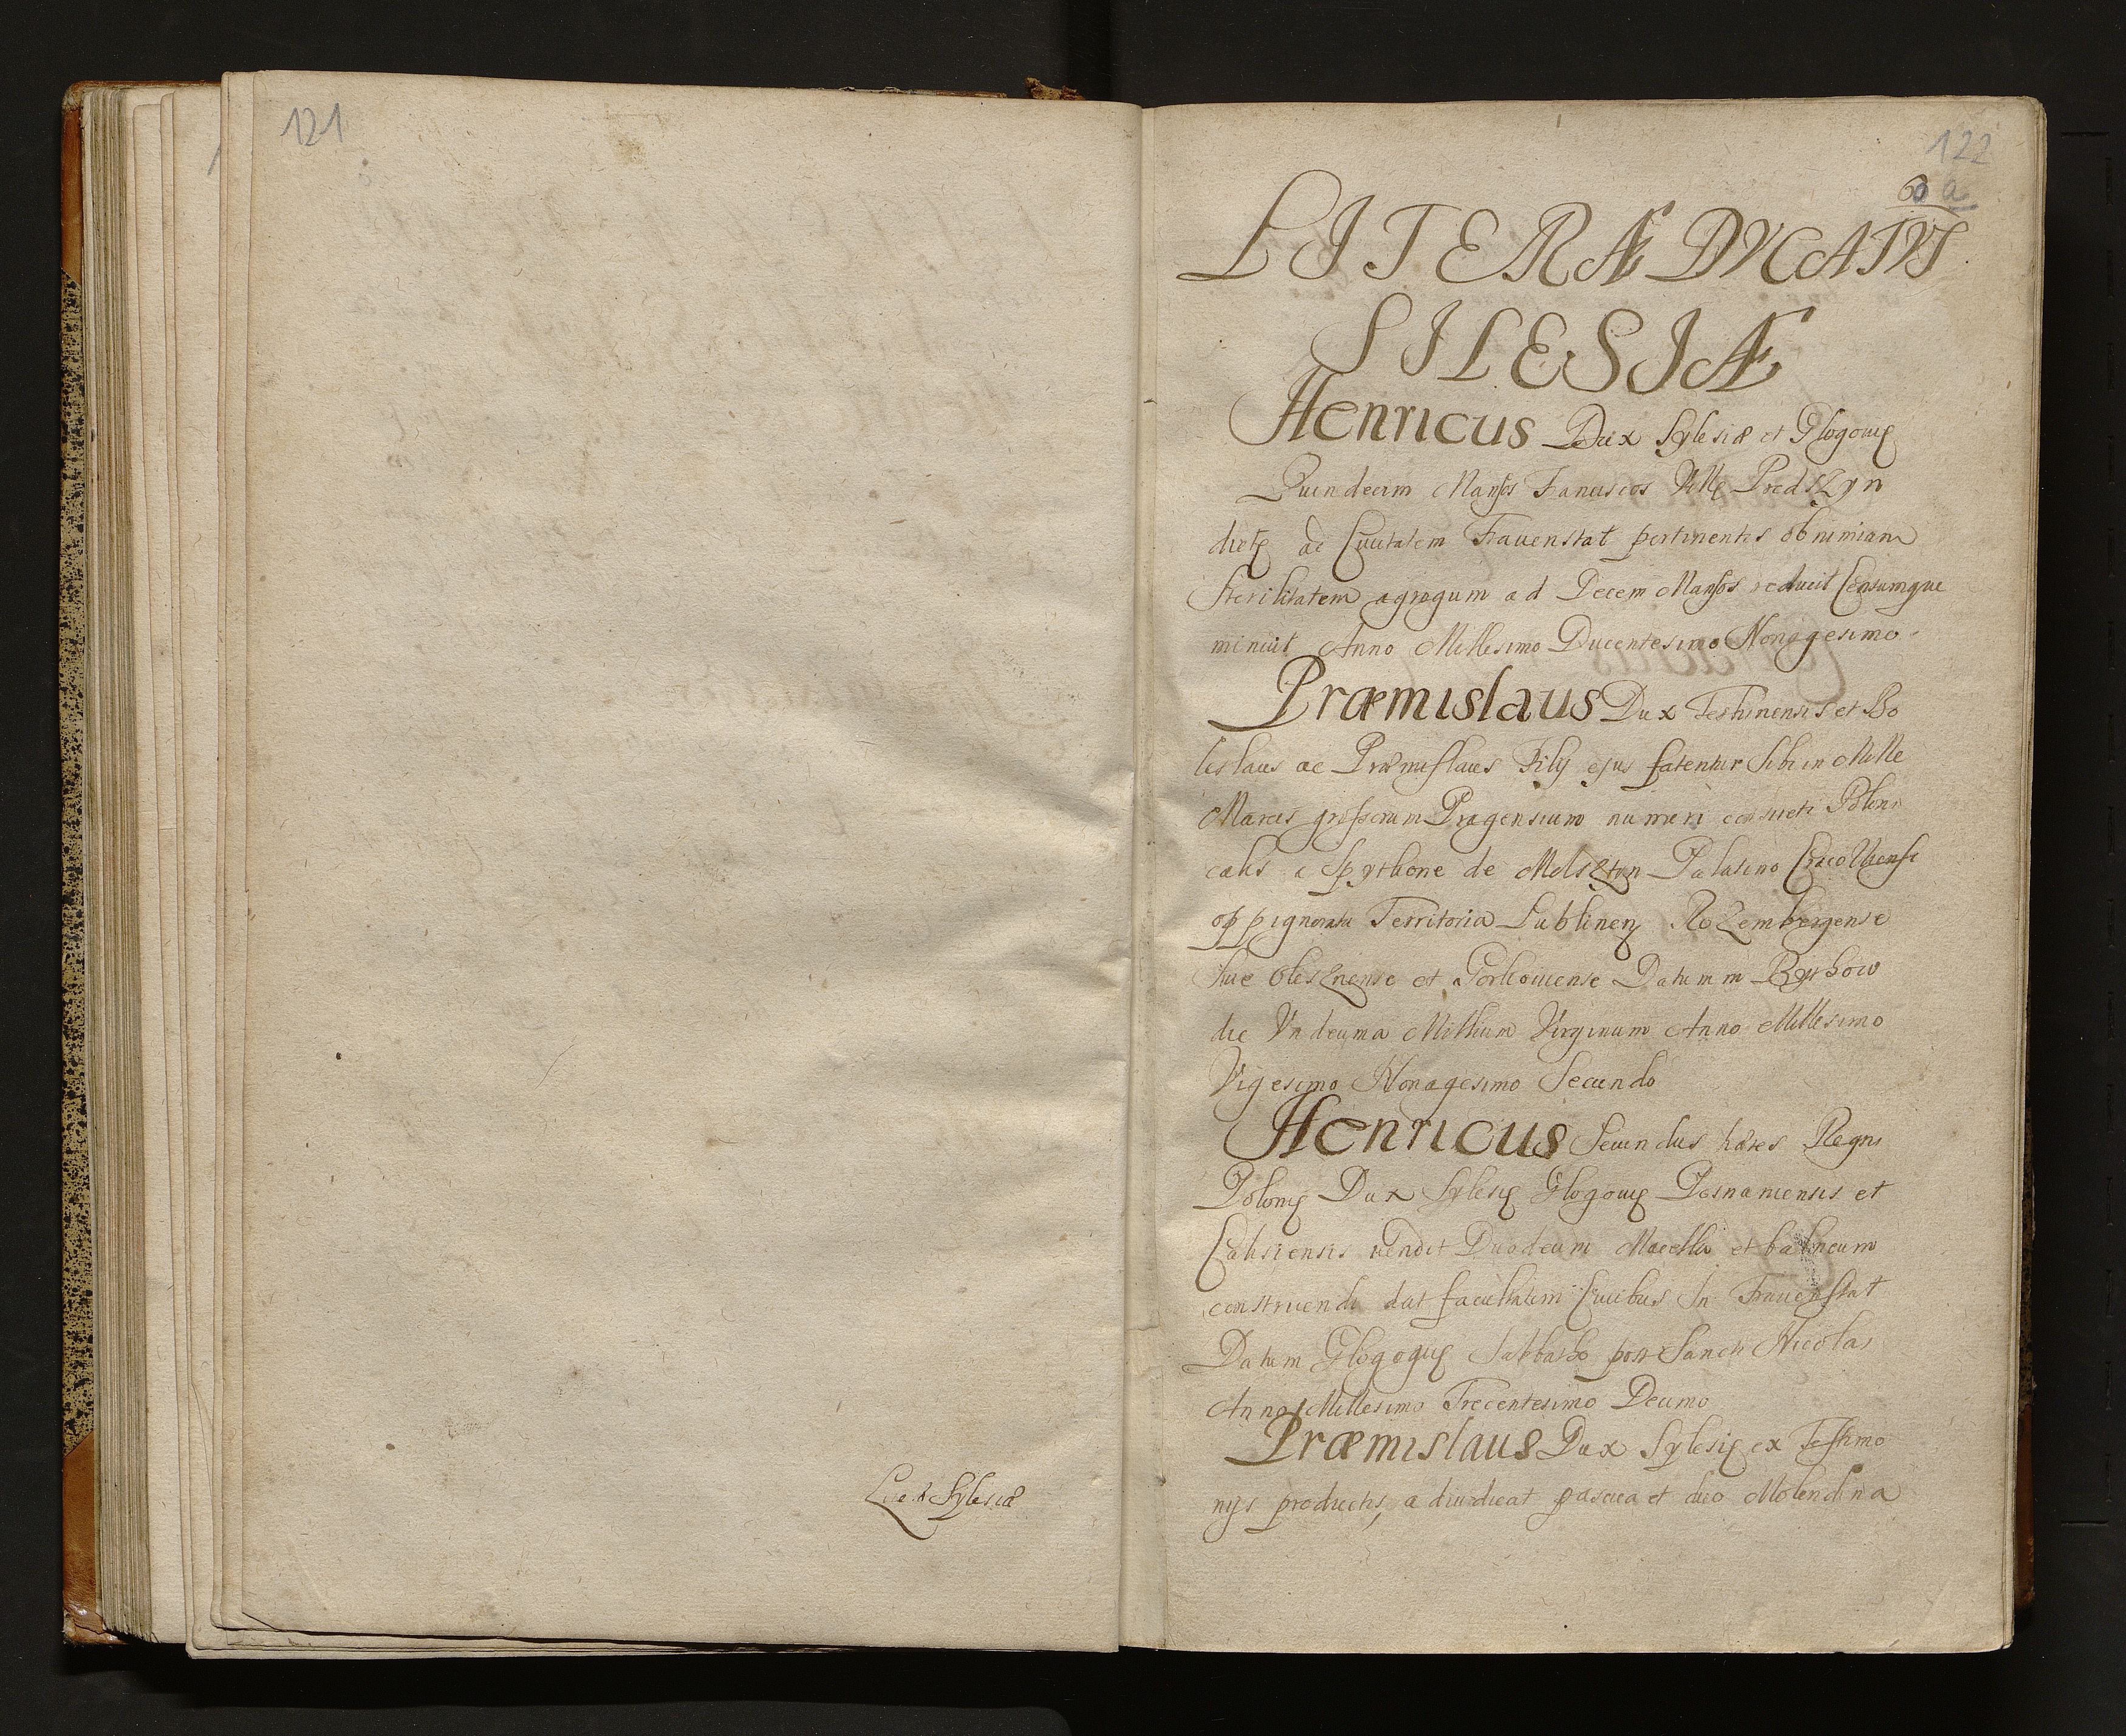 121
Literæ Sylesiæ
122
LITERÆ DVCATVS
SILESIÆ
Henricus Dux Sylesiæ et Glogouię
Quindecim Mansos Francicos Villę Predszyn
dictę ad Ciuitatem Frauenstat pertinentis ob nimiam
sterilitatem agrogum ad Decem Mansos reducit Censumque
minuit Anno Millesimo Ducentesimo Nonagesimo
Præmislaus Dux Teshinensis et Bo
leslaus ac Præmislaus Filij ejus fatentur Sibi in Mille
Marcis grossorum Pragensium numeri consueti Poloni
calis a Spythone de Melsztyn Palatino Cracouiensi
oppignorata Territoria Lublinen Rozembergense
siue Olesznense et Gorlouiense Datum in Bythow
die Vndecima Millium Virginum Anno Millesimo
Vigesimo Nonagesimo Secundo
Henricus Secundus hæres Regni
Polonię Dux Sylesię Glogouię Posnaniensis et
Calisiensis uendit Duodecim Macella et balneum
construendi dat facultatem Ciuibus In Frauenstat
Datum Glogoguę Sabbatho post Sancti Nicolai
Anno Millesimo Trecentesimo Decimo
Præmislaus Dux Sylesię ex Testimo
nijs productis, adiudicat pascua et duo Molendina